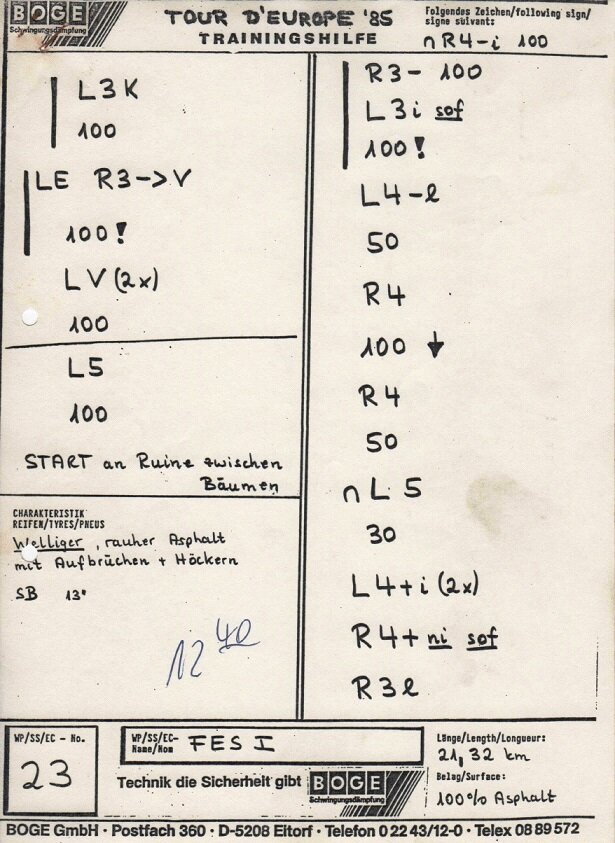 BOGE
Schwingungsdämpfung
TOUR D'EUROPE '85
TRAININGSHILFE
Folgendes Zeichen/following sign/
signe suivant:
∩R4-i 100
L3K
100
LE R3->V
100!
LV(2x)
100
L5
100
START an Ruine zwischen
Bäumen
CHARAKTERISTIK
REIFEN/TYRES/PNEUS
Welliger, rauher Asphalt
mit Aufbrüchen + Höckern
SB 13"
12 40
R3- 100
L3i sof
100!
L4-l
50
R4
100 ↓
R4
50
∩L5
30
L4+i (2x)
R4+ni sof
R3l
WP/SS/EC - No.
23
WP/SS/EC-
Name/Nom
FES I
Technik die Sicherheit gibt
BOGE
Schwingungsdämpfung
Länge/Length/Longueur:
21,32 km
Belag/Surface:
100% Asphalt
BOGE GmbH · Postfach 360 · D-5208 Eitorf · Telefon 0 22 43/12-0 · Telex 08 89 572